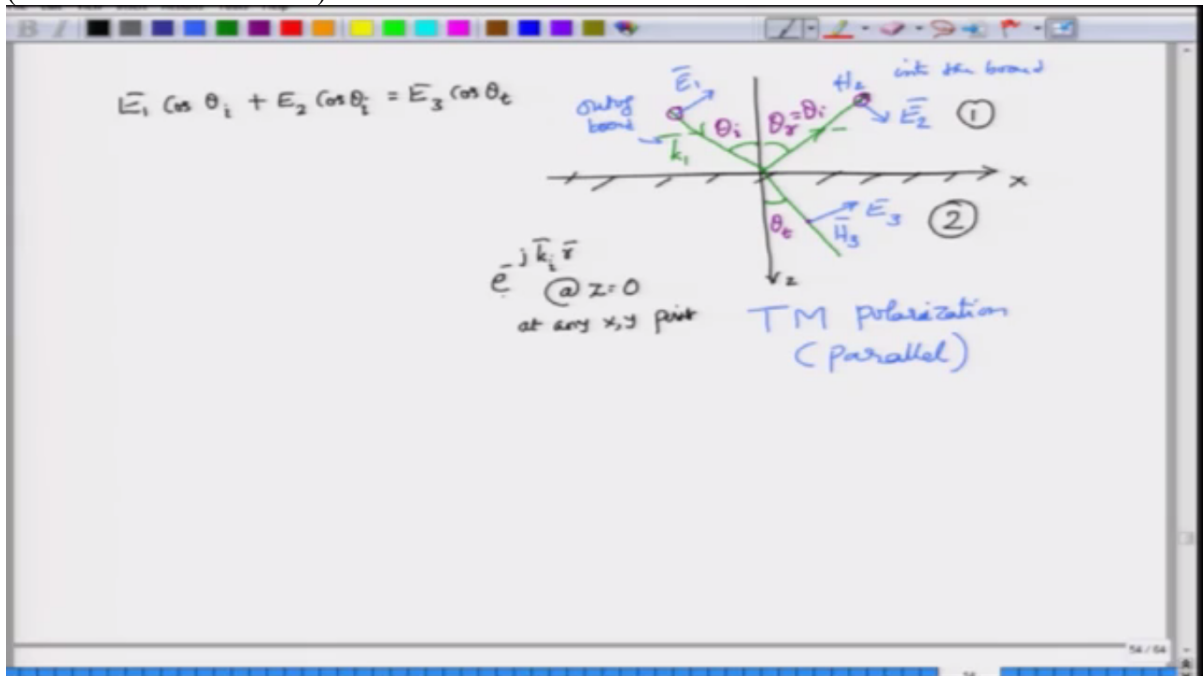 B I
Ē₁ Cos θᵢ + E₂ Cosθᵢ = Ē₃ Cos θt
Ē₁
out of
board
k̄₁
θᵢ
θr=θᵢ
H₂
into the board
Ē₂
①
x
θt
Ē₃
H̄₃
②
z
e^-jk̄ᵢ r̄
@ z=0
at any x,y point
TM polarization
(parallel)
54 / 64